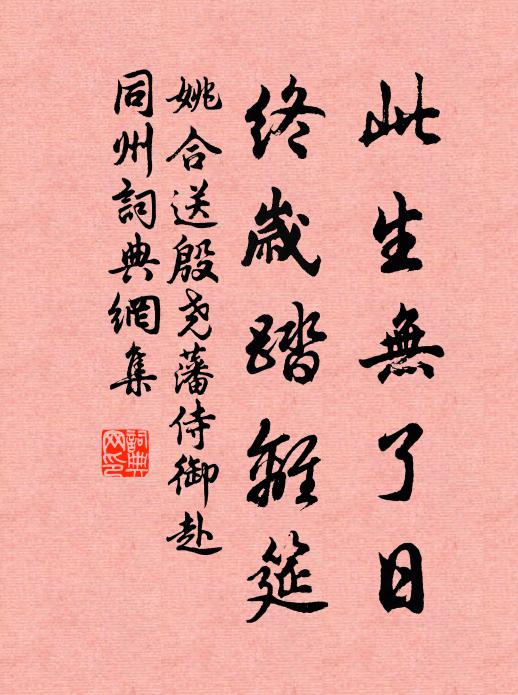 此生無了日
終歲踏離筵
姚合送殷堯藩侍御赴
同州詞典網集
詞典網印